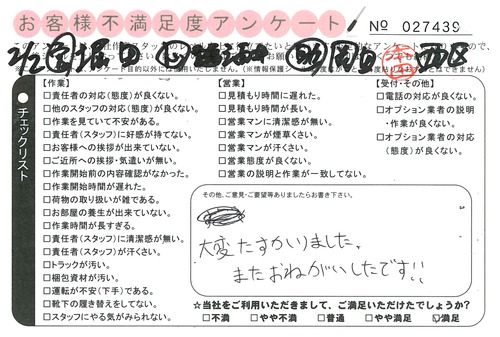 お客様不満足度アンケート
No 027439
チェックリスト
【作業】
□責任者の対応(態度)が良くない。
□他のスタッフの対応(態度)が良くない。
□作業を見ていて不安がある。
□責任者(スタッフ)に好感が持てない。
□お客様への挨拶が出来ていない。
□ご近所への挨拶・気遣いが無い。
□作業開始前の内容確認がなかった。
□作業開始時間が遅れた。
□荷物の取り扱いが雑である。
□お部屋の養生が出来ていない。
□作業時間が長すぎる。
□責任者(スタッフ)に清潔感が無い。
□責任者(スタッフ)が汗くさい。
□トラックが汚い。
□梱包資材が汚い。
□運転が不安(下手)である。
□靴下の履き替えをしてない。
□スタッフにやる気がみられない。
【営業】
□見積もり時間に遅れた。
□見積もり時間が長い。
□営業マンに清潔感が無い。
□営業マンが煙草くさい。
□営業マンが汗くさい。
□営業態度が良くない。
□営業の説明と作業が一致してない。
【受付・その他】
□電話の対応が良くない。
□オプション業者の説明
・作業が良くない。
□オプション業者の対応
(態度)が良くない。
その他、ご意見・ご要望等ありましたらお書き下さい。
大変たすかりました。
またおねがいしたです!!
☆当社をご利用いただきまして、ご満足いただけたでしょうか?
□不満 □やや不満 □普通 □やや満足 ☑満足